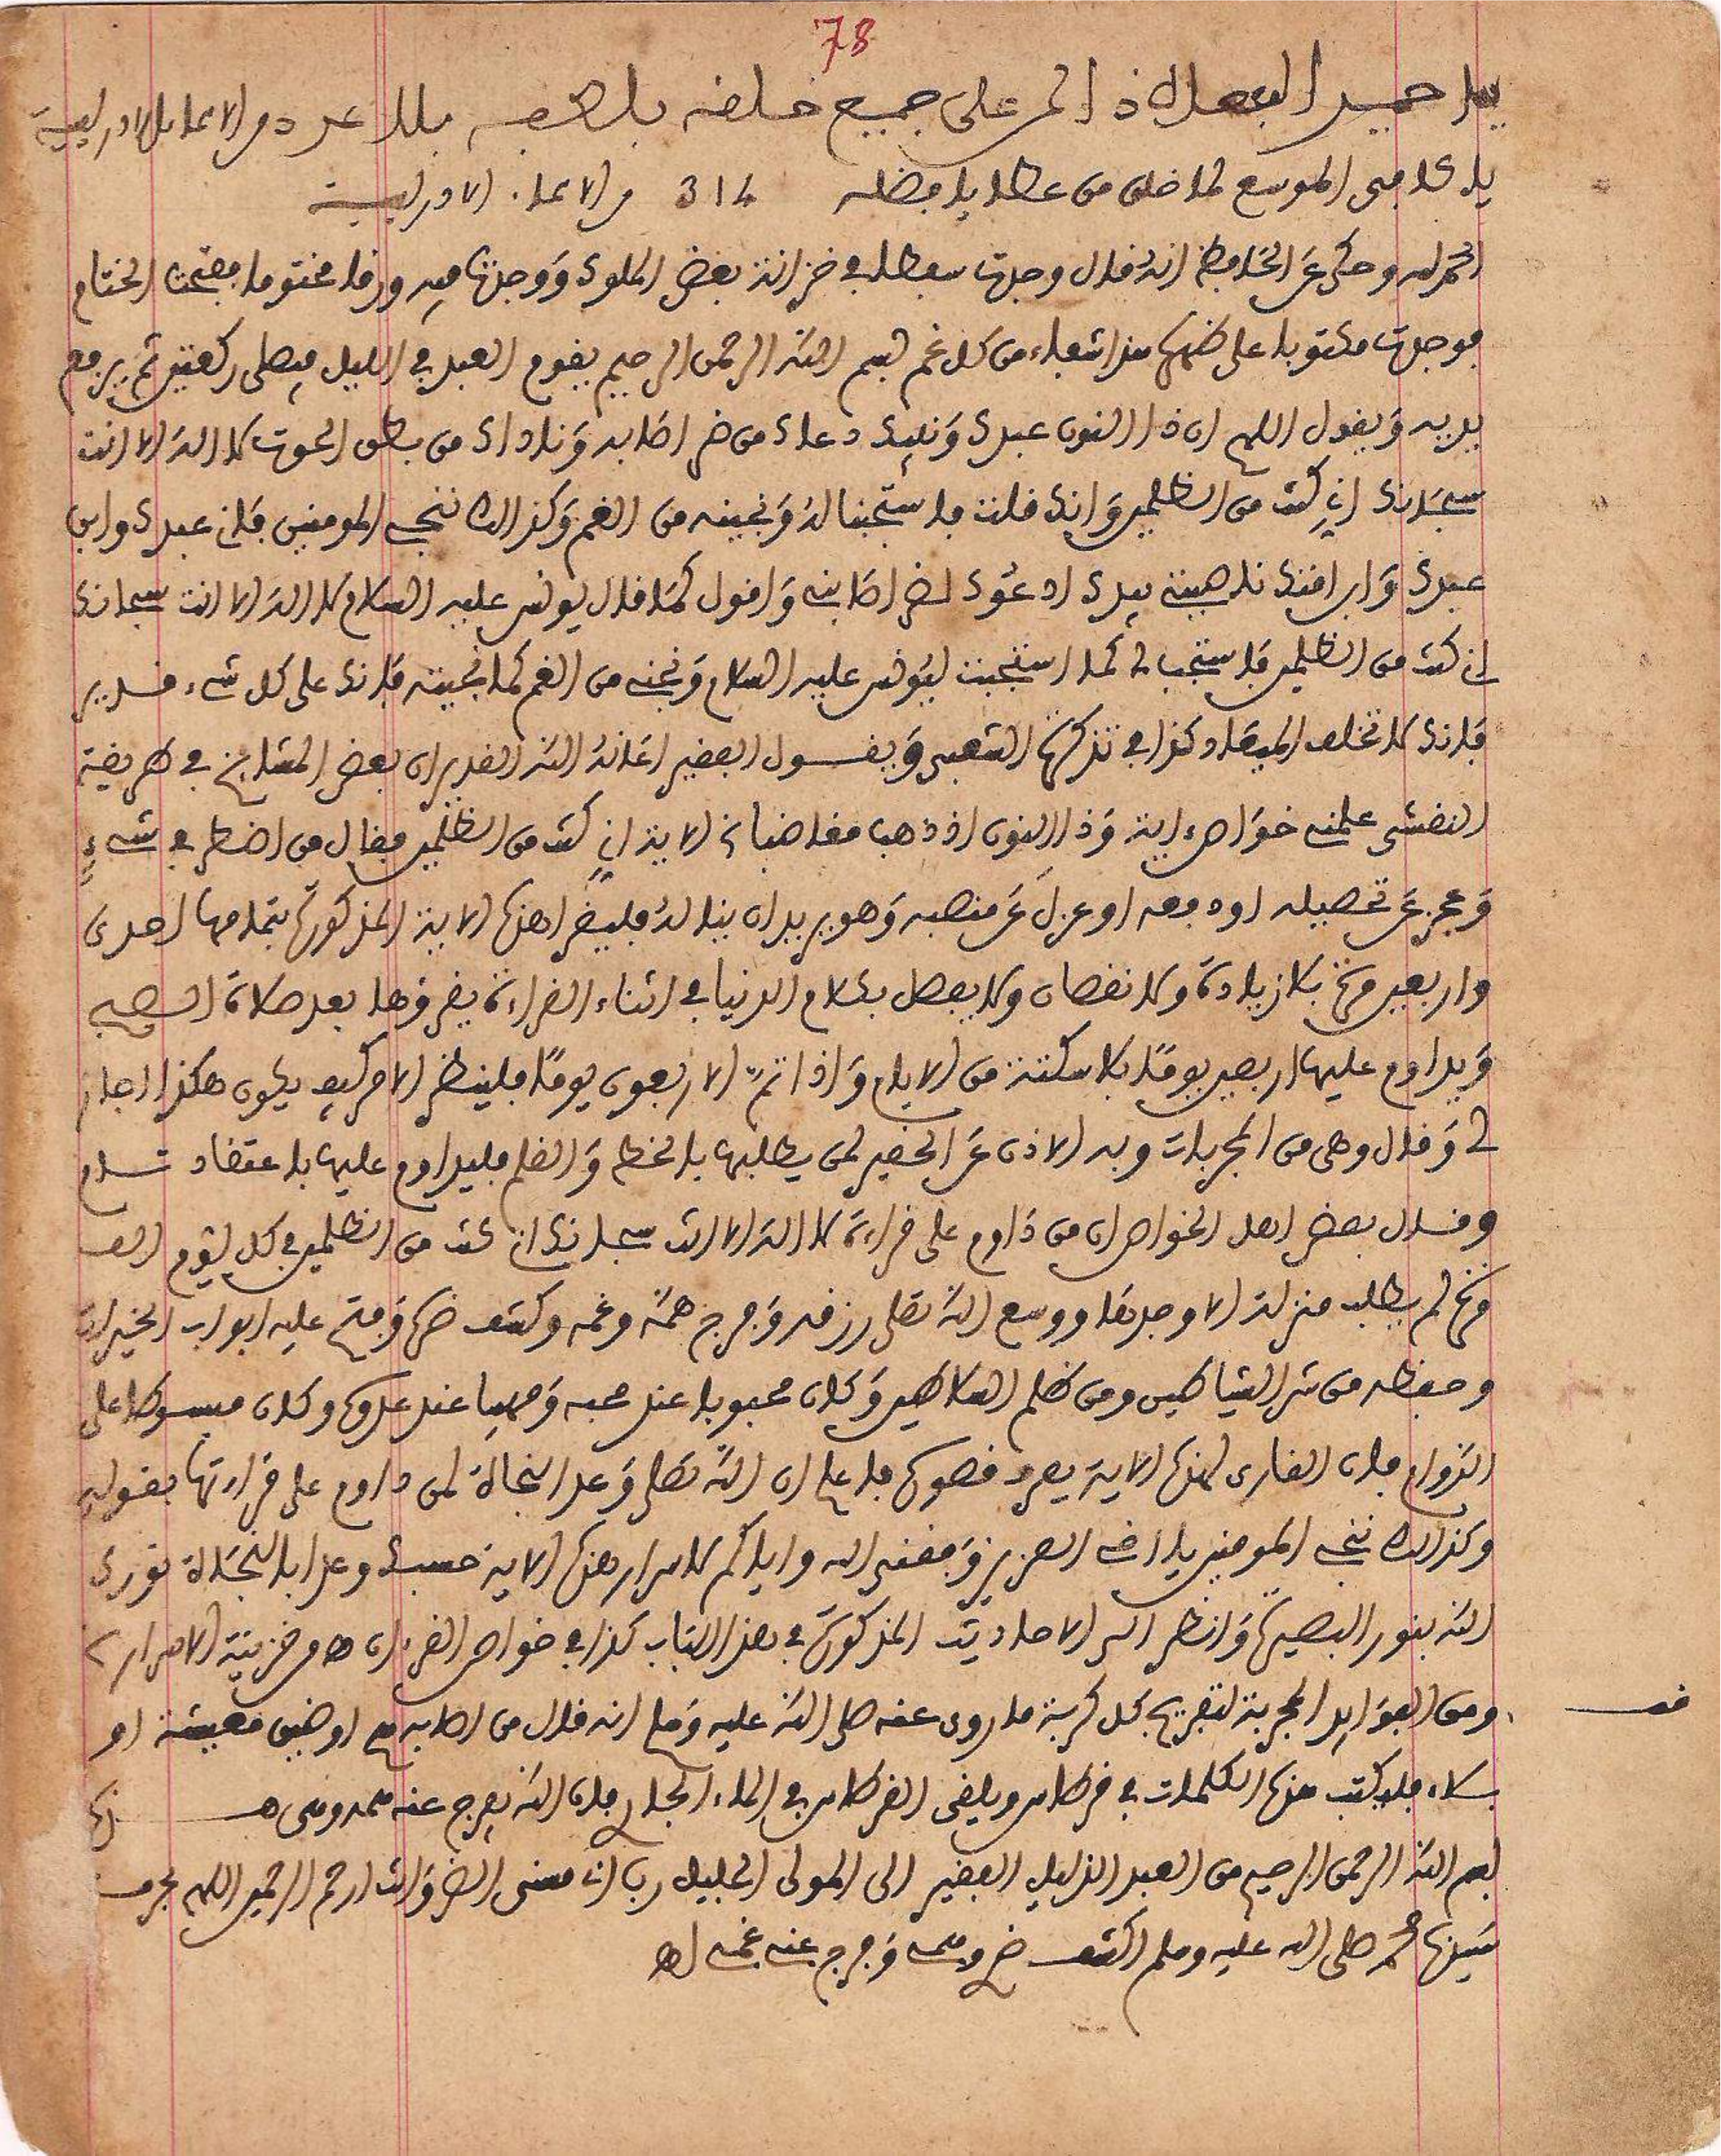 78
يا حميد الفعال ذا المن على جميع خلقه بلطفه بلا عدد من الاسماء الادريسية
يا كافي الموسع لما خلق من عطايا فضله 314 من الاسماء الادريسية
الحمد لله وحكي عن الحافظ انه قال وجدت سفطا في خزانة بعض الملوك ووجدت فيه ورقا مختوما ففتحت الختام
فوجدت مكتوبا على ظهرها هذا شفاء من كل غم بسم الله الرحمن الرحيم يقوم العبد في الليل فيصلي ركعتين ثم يرفع
يديه ويقول اللهم ان ذا النون عبدك ونبيك دعاك من ضر اصابه وناداك من بطن الحوت لا اله الا انت
سبحانك اني كنت من الظلمين وانك قلت فاستجبنا له ونجينه من الغم وكذالك ننجي المومنين فاني عبدك وابن
عبدك وابن امتك ناصيتي بيدك ادعوك لضر اصابني واقول كما قال يونس عليه السلام لا اله الا انت سبحانك
اني كنت من الظلمين فاستجب لي كما استجبت ليونس عليه السلام ونجني من الغم كما نجيته فانك على كل شيء قدير
فانك لا تخلف الميعاد كذا في تذكرة الشعبي ويقول الفقير اغاثه الله القدير ان بعض المشايخ في طريقة
النقشي علمني خواص ءاية وذا النون اذ ذهب مغاضبا الاية اني كنت من الظلمين فقال من اضطر في شيء
وعجز عن تحصيله او دفعه او عزل عن منصبه وهو يريد ان ينال له فليقرا هذه الاية المذكورة بتمامها احدى
واربعين مرة بلا زيادة ولا نقصان ولا يفصل بكلام الدنيا في اثناء القراءة يقرؤها بعد صلاة الصبح
ويداوم عليها اربعين يوما بلا سكتة من الايام واذا تم الاربعون يوما فلينظر الامر كيف يكون هكذا اجاز
لي وقال وهي من المجربات وبه الاذن عن الحقير لمن يطلبها بالخط والقلم فليداوم عليها باعتقاد تام
وقال بعض اهل الخواص ان من داوم على قراءة لا اله الا انت سبحانك اني كنت من الظلمين في كل يوم الف
مرة لم يطلب منزلة الا وجدها ووسع الله تعلى رزقه وفرج همه وغمه وكشف ضره وفتح عليه ابواب الخيرات
وحفظه من شر الشياطين ومن ظلم السلاطين وكان محبوبا عند محبه ومهيبا عند عدوه وكان مبسوطا على
الدوام فان القارى لهذه الاية يعرف فاعلم ان الله تعلى وعد النجاة لمن داوم على قراءتها بقوله
وكذالك ننجي المومنين يا اخي العزيز وفقني الله واياكم لاسرار هذه الاية حسبك وعدا بالنجاة نورك
الله بنور البصيرة وانظر الى الاحاديث المذكورة في هذا الباب كذا في خواص القرءان اهـ من خزينة الاسرار
قف
ومن الفوايد المجربة لتفريج كل كربة ما روي عنه صلى الله عليه وسلم انه قال من اصابه هم او ضيق معيشة او
بلاء فليكتب هذه الكلمات في قرطاس ويلقي القرطاس في الماء الجار فان الله يفرج عنه
بسم الله الرحمن الرحيم من العبد الذليل الفقير الى المولى الجليل رب اني مسني الضر وانت ارحم الرحمين اللهم بحرمت
سيدنا محمد صلى الله عليه وسلم اكشف ضري وهمي وفرج عني غمي اهـ